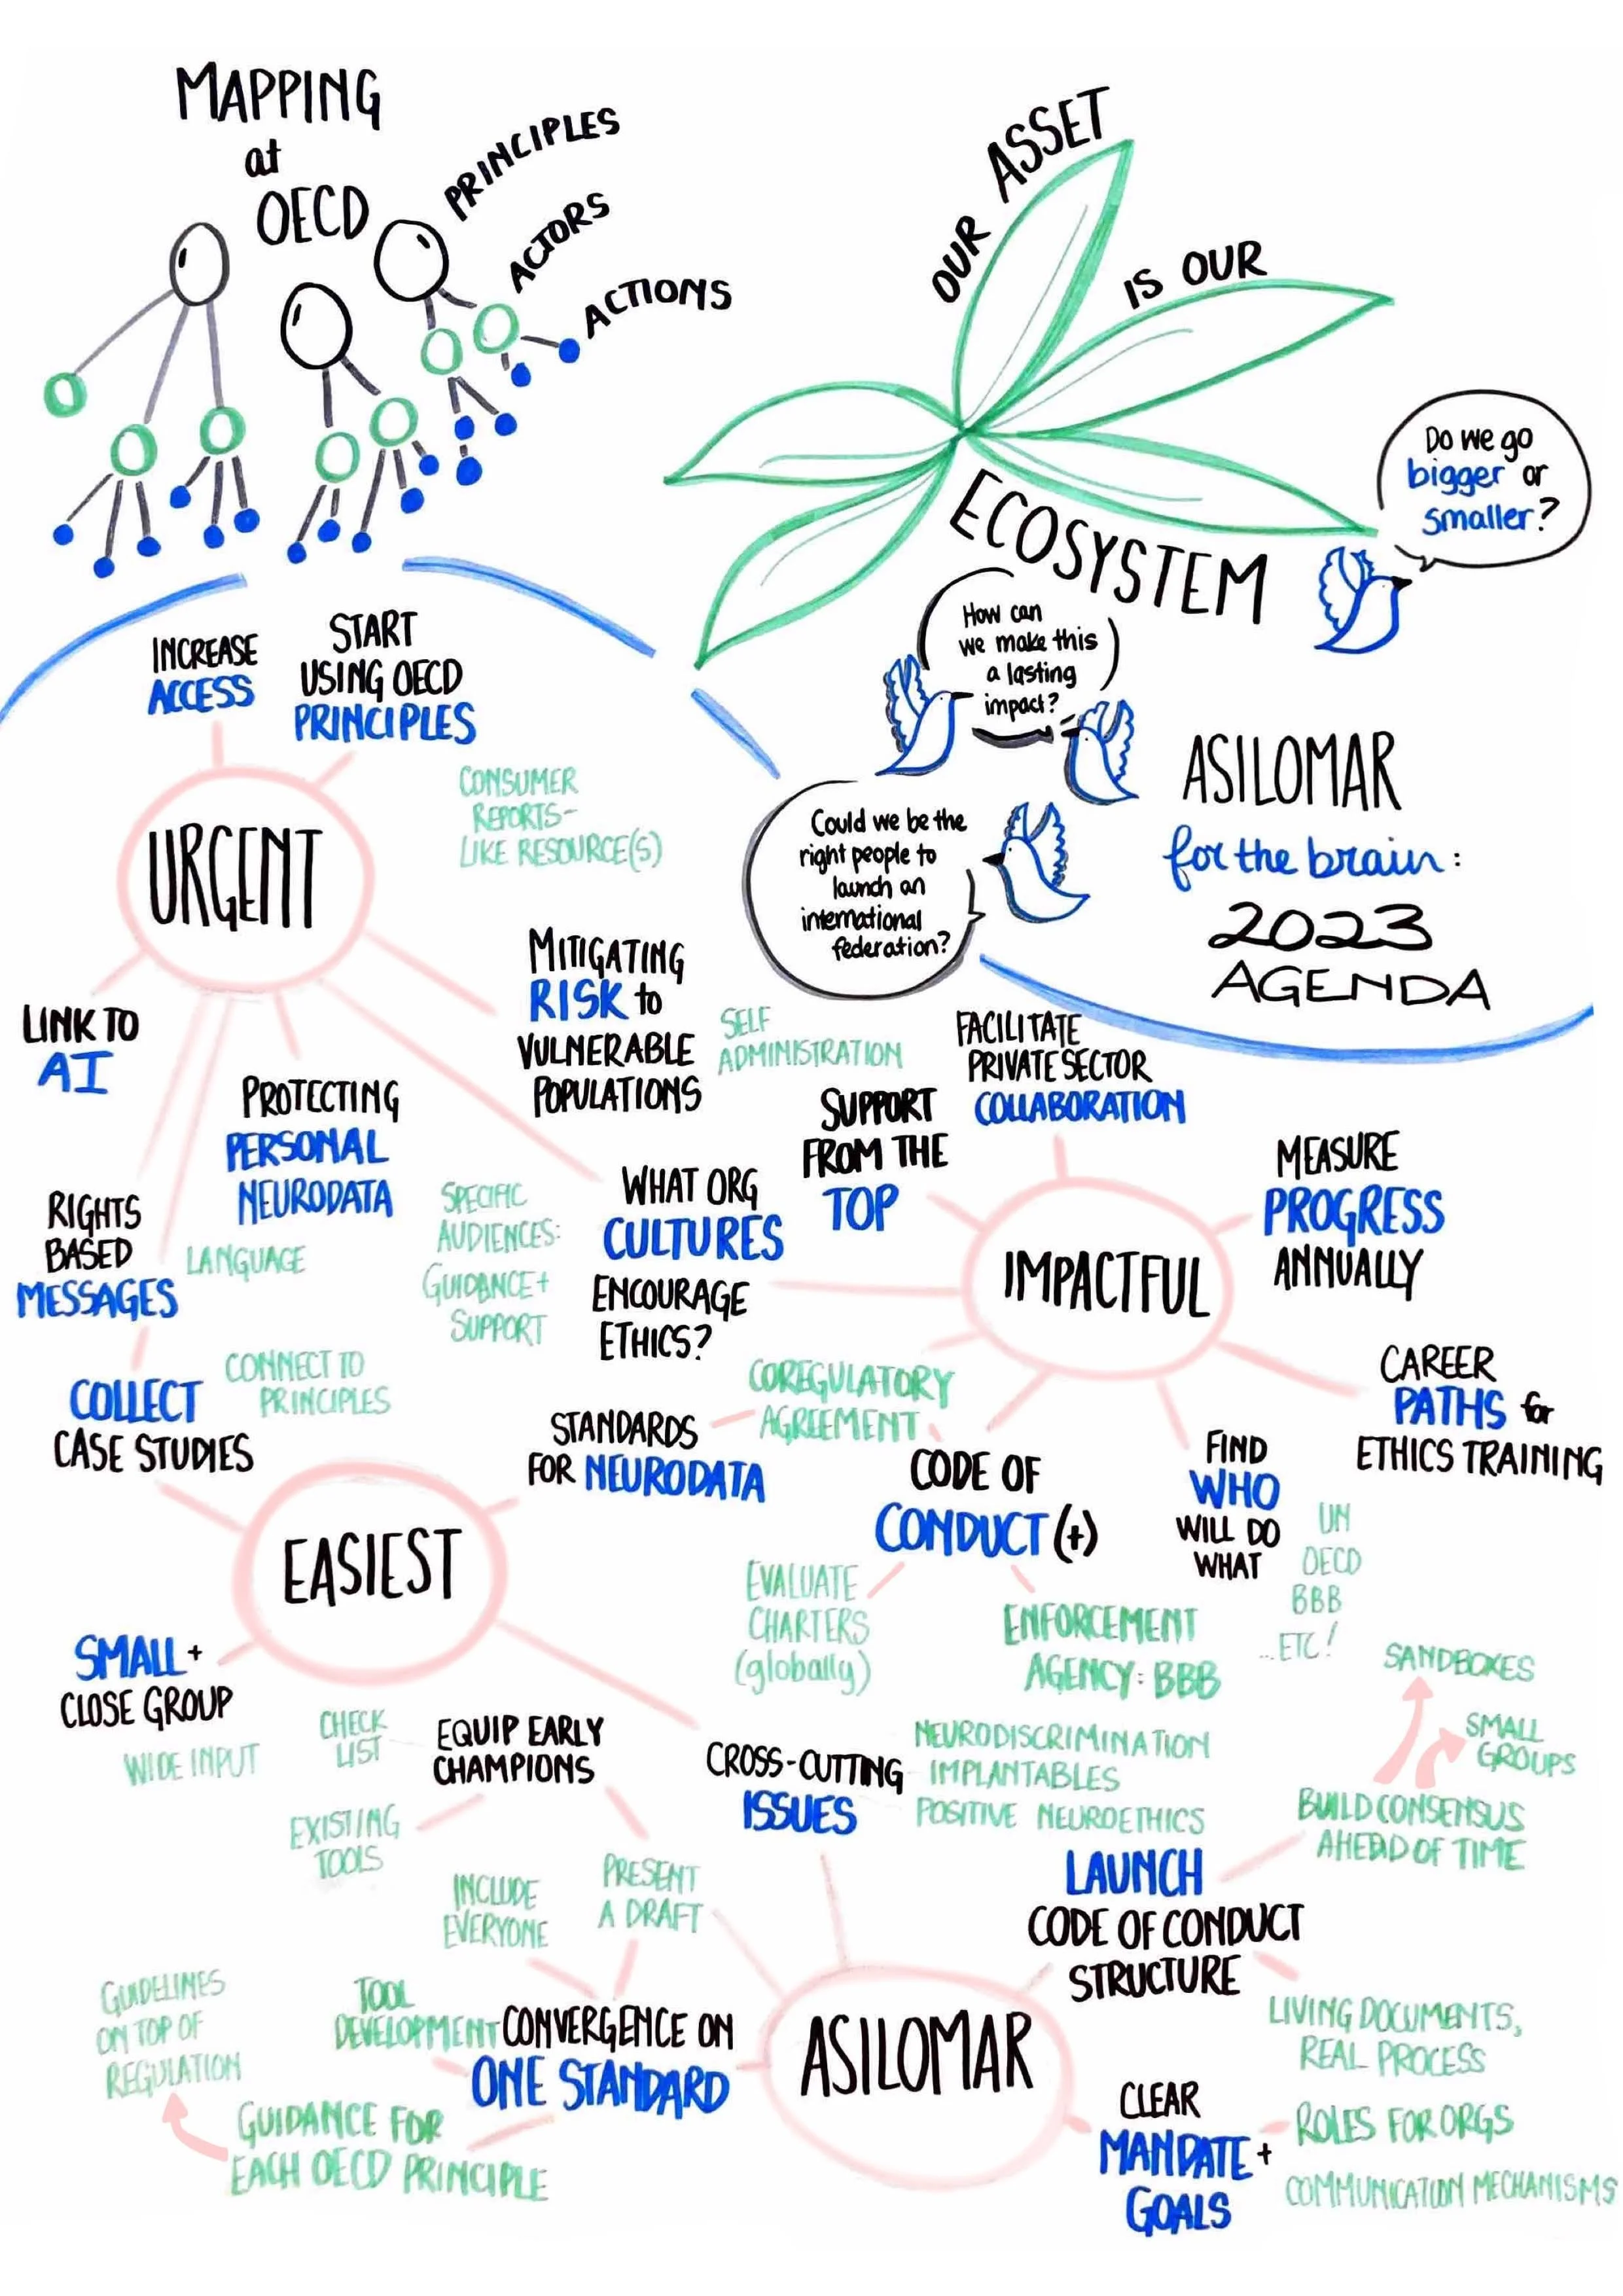 MAPPING
at
OECD
PRINCIPLES
ACTORS
ACTIONS
OUR ASSET
IS OUR
ECOSYSTEM
Do we go
bigger or
smaller?
How can
we make this
a lasting
impact?
Could we be the
right people to
launch an
international
federation?
ASILOMAR
for the brain:
2023
AGENDA
INCREASE
ACCESS
START
USING OECD
PRINCIPLES
CONSUMER
REPORTS-
LIKE RESOURCE(S)
URGENT
LINK TO
AI
PROTECTING
PERSONAL
NEURODATA
MITIGATING
RISK to
VULNERABLE
POPULATIONS
SELF
ADMINISTRATION
RIGHTS
BASED
MESSAGES
LANGUAGE
SPECIFIC
AUDIENCES:
GUIDANCE+
SUPPORT
WHAT ORG
CULTURES
ENCOURAGE
ETHICS?
SUPPORT
FROM THE
TOP
FACILITATE
PRIVATE SECTOR
COLLABORATION
MEASURE
PROGRESS
ANNUALLY
IMPACTFUL
CAREER
PATHS for
ETHICS TRAINING
FIND
WHO
WILL DO
WHAT
UN
OECD
BBB
...ETC!
COREGULATORY
AGREEMENT
CODE OF
CONDUCT (+)
EVALUATE
CHARTERS
(globally)
ENFORCEMENT
AGENCY: BBB
COLLECT
CASE STUDIES
CONNECT TO
PRINCIPLES
STANDARDS
FOR NEURODATA
EASIEST
SMALL +
CLOSE GROUP
WIDE INPUT
CHECK
LIST
EQUIP EARLY
CHAMPIONS
EXISTING
TOOLS
INCLUDE
EVERYONE
PRESENT
A DRAFT
CROSS-CUTTING
ISSUES
NEURODISCRIMINATION
IMPLANTABLES
POSITIVE NEUROETHICS
SANDBOXES
SMALL
GROUPS
BUILD CONSENSUS
AHEAD OF TIME
LAUNCH
CODE OF CONDUCT
STRUCTURE
LIVING DOCUMENTS,
REAL PROCESS
GUIDELINES
ON TOP OF
REGULATION
TOOL
DEVELOPMENT
CONVERGENCE ON
ONE STANDARD
GUIDANCE FOR
EACH OECD PRINCIPLE
ASILOMAR
CLEAR
MANDATE +
GOALS
ROLES FOR ORGS
COMMUNICATION MECHANISMS